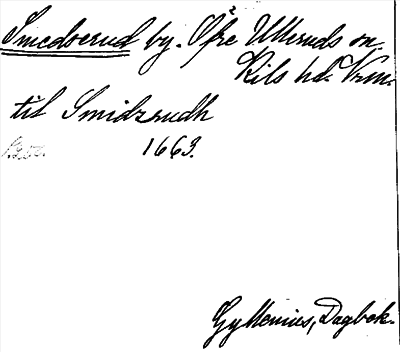 Smedserud by. Øfre Ulleruds sn.
Kils hd. Vrm.
til Smidzrudh
1663.
Gyllenius, Dagbok.